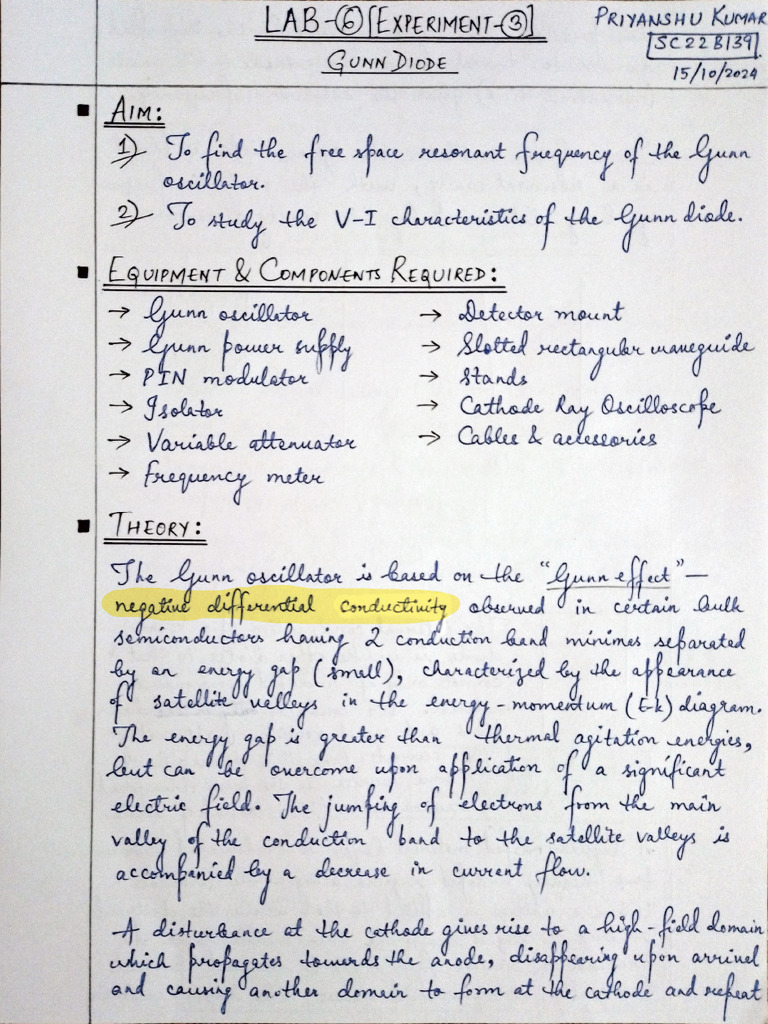 LAB-6 [EXPERIMENT-3]
PRIYANSHU KUMAR
SC22B139
GUNN DIODE
15/10/2024
AIM:
1) To find the free space resonant frequency of the Gunn
oscillator.
2) To study the V-I characteristics of the Gunn diode.
EQUIPMENT & COMPONENTS REQUIRED:
→ Gunn oscillator
→ Gunn power supply
→ PIN modulator
→ Isolator
→ Variable attenuator
→ Frequency meter
→ Detector mount
→ Slotted rectangular waveguide
→ Stands
→ Cathode Ray Oscilloscope
→ Cables & accessories
THEORY:
The Gunn oscillator is based on the "Gunn effect"—
negative differential conductivity observed in certain bulk
semiconductors having 2 conduction band minimas separated
by an energy gap (small), characterized by the appearance
of satellite valleys in the energy-momentum (E-k) diagram.
The energy gap is greater than thermal agitation energies,
but can be overcome upon application of a significant
electric field. The jumping of electrons from the main
valley of the conduction band to the satellite valleys is
accompanied by a decrease in current flow.
A disturbance at the cathode gives rise to a high-field domain
which propagates towards the anode, disappearing upon arrival
and causing another domain to form at the cathode and repeat